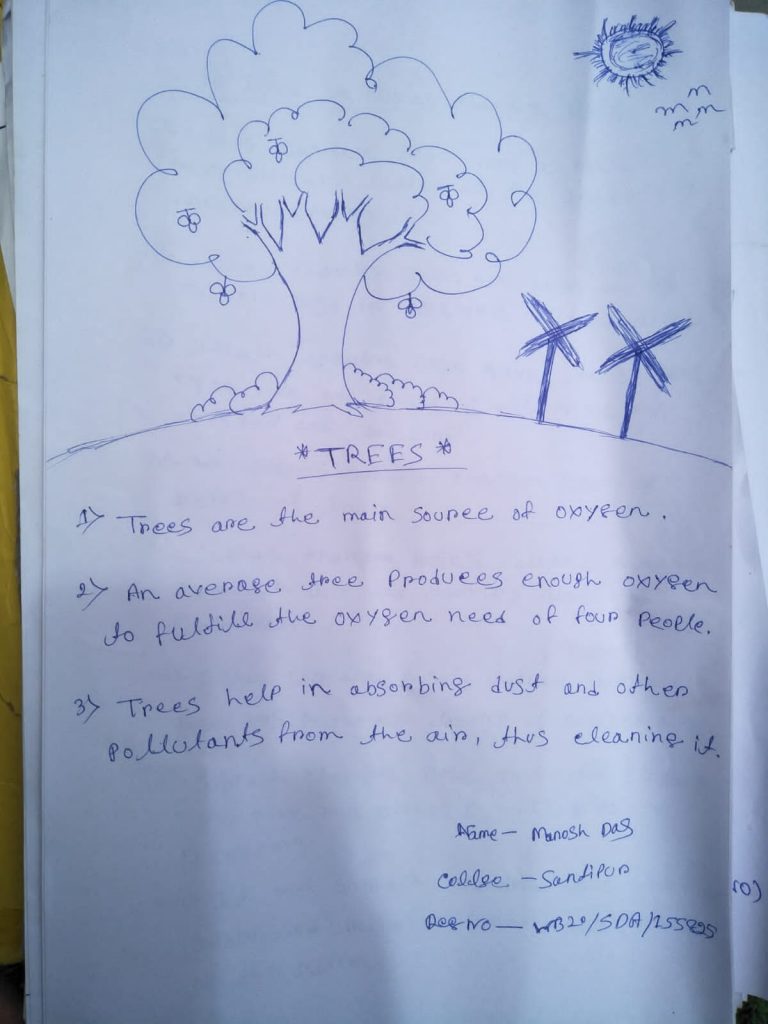 * TREES *
1) Trees are the main source of oxygen.
2) An average tree produces enough oxygen
to fulfill the oxygen need of four people.
3) Trees help in absorbing dust and other
pollutants from the air, thus cleaning it.
Name - Manosh Das
- Santipur
Reg No - WB20/SDA/155825